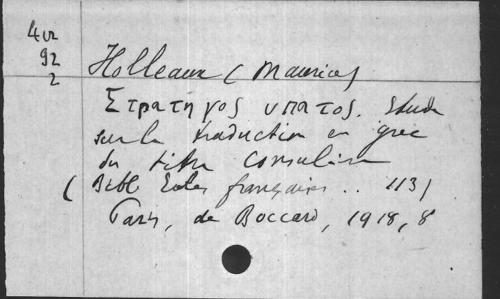 4u
92
2
Holleaux (Maurice)
Στρατηγος υπατος. Etude
sur la traduction en grec
du titre consulaire
(Bibl Ecoles françaises .. 113)
Paris, de Boccard, 1918, 8